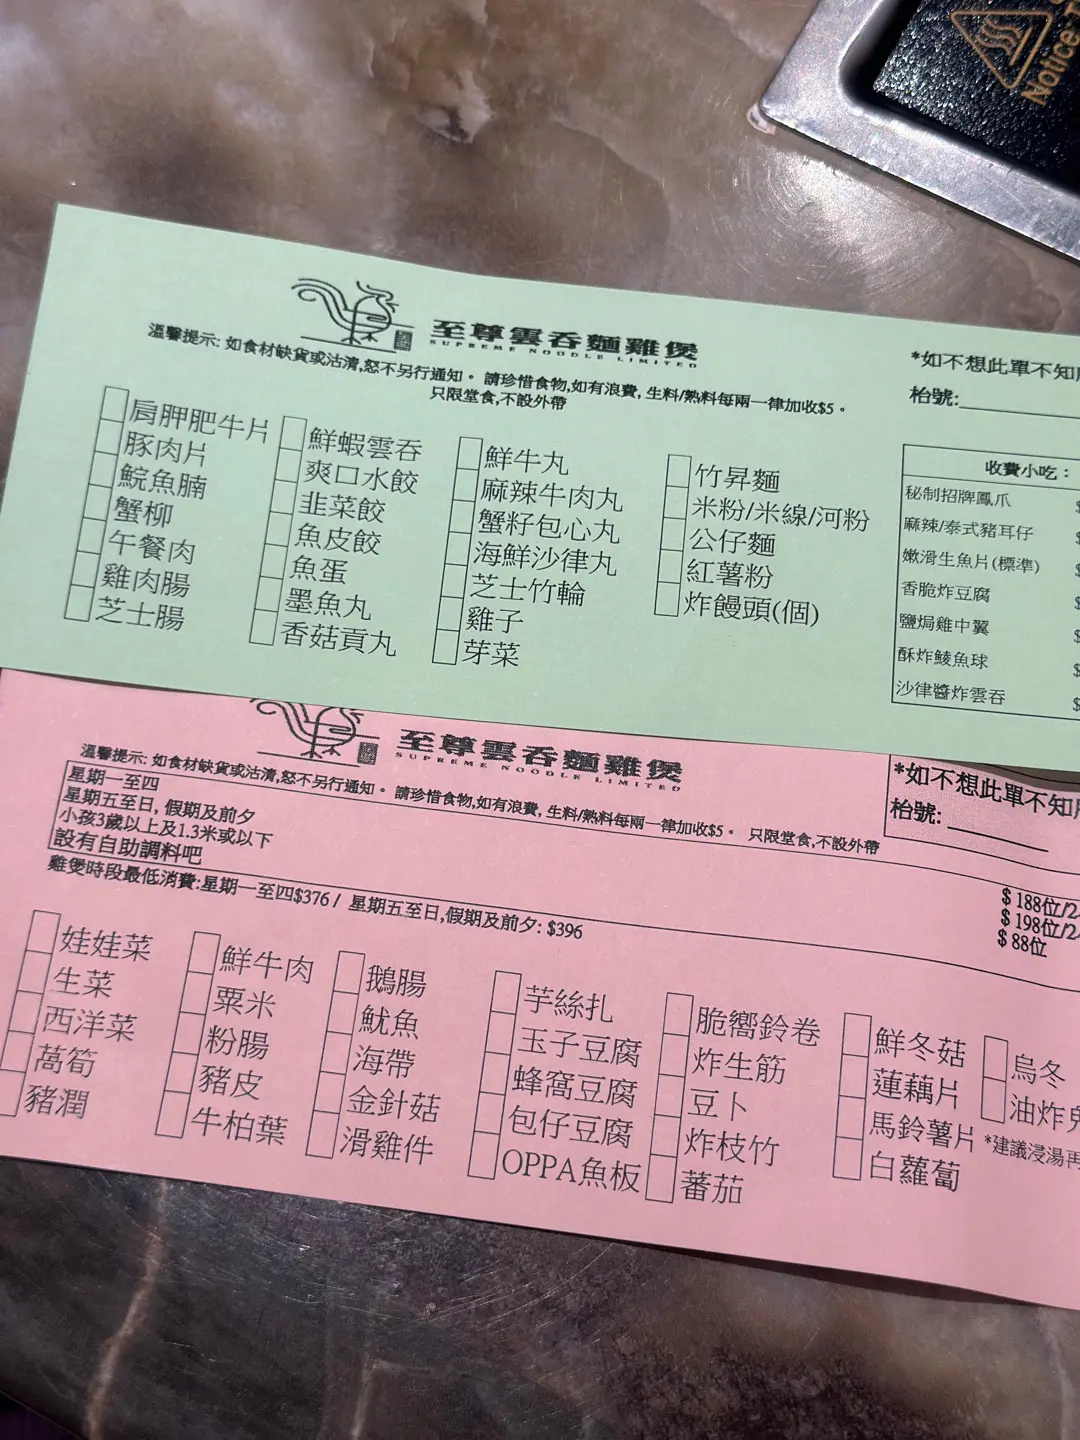 Notice:
至尊雲吞麵雞煲
SUPREME NOODLE LIMITED
溫馨提示: 如食材缺貨或沽清,恕不另行通知。 請珍惜食物,如有浪費, 生料/熟料每兩一律加收$5。
只限堂食,不設外帶
*如不想此單不知
枱號:
肩胛肥牛片
豚肉片
鯇魚腩
蟹柳
午餐肉
雞肉腸
芝士腸
鮮蝦雲吞
爽口水餃
韭菜餃
魚皮餃
魚蛋
墨魚丸
香菇貢丸
鮮牛丸
麻辣牛肉丸
蟹籽包心丸
海鮮沙律丸
芝士竹輪
雞子
芽菜
竹昇麵
米粉/米線/河粉
公仔麵
紅薯粉
炸饅頭(個)
收費小吃：
秘制招牌鳳爪
麻辣/泰式豬耳仔
嫩滑生魚片(標準)
香脆炸豆腐
鹽焗雞中翼
酥炸鯪魚球
沙律醬炸雲吞
至尊雲吞麵雞煲
SUPREME NOODLE LIMITED
溫馨提示: 如食材缺貨或沽清,恕不另行通知。 請珍惜食物,如有浪費, 生料/熟料每兩一律加收$5。 只限堂食,不設外帶
*如不想此單不知
枱號:
星期一至四 $ 188位/2
星期五至日, 假期及前夕 $ 198位/2
小孩3歲以上及1.3米或以下 $ 88位
設有自助調料吧
雞煲時段最低消費:星期一至四$376 / 星期五至日,假期及前夕: $396
娃娃菜
生菜
西洋菜
萵筍
豬潤
鮮牛肉
粟米
粉腸
豬皮
牛柏葉
鵝腸
魷魚
海帶
金針菇
滑雞件
芋絲扎
玉子豆腐
蜂窩豆腐
包仔豆腐
OPPA魚板
脆嚮鈴卷
炸生筋
豆卜
炸枝竹
蕃茄
鮮冬菇
蓮藕片
馬鈴薯片
白蘿蔔
烏冬
油炸
*建議浸湯再